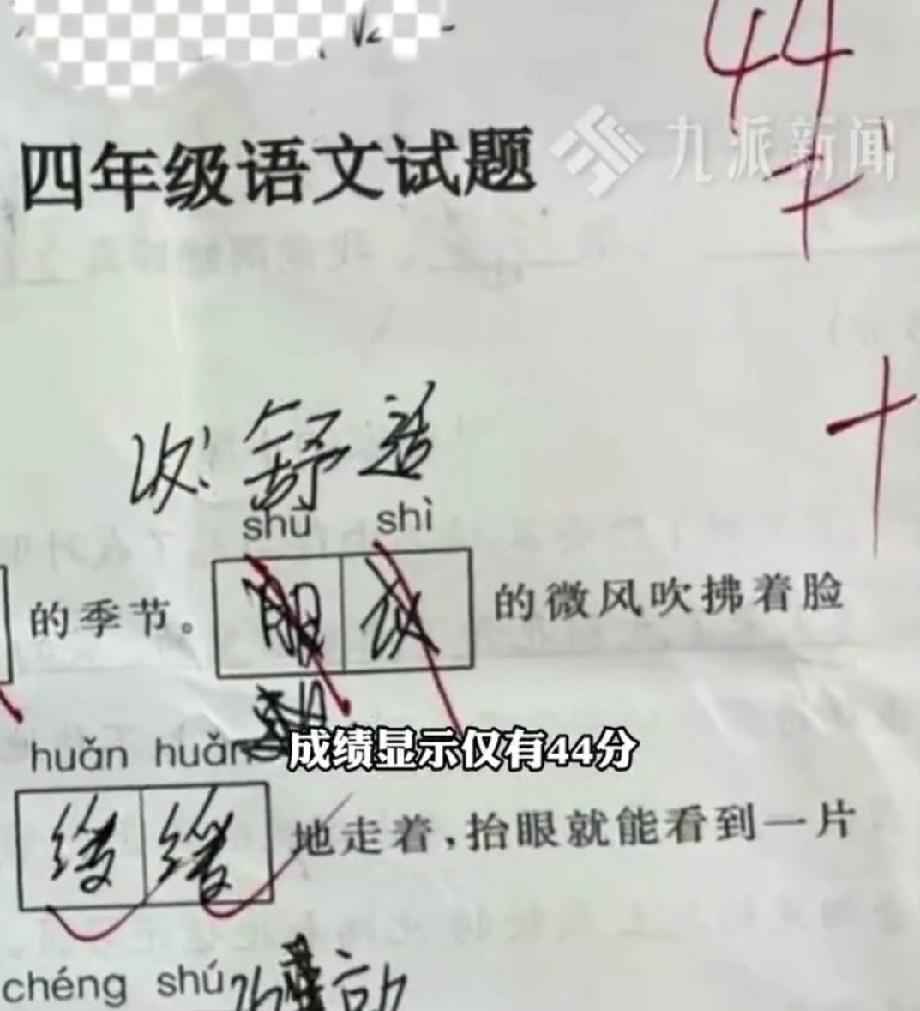 44
四年级语文试题
九派新闻
改:舒适
shū shì
的季节。
的微风吹拂着脸
huǎn huǎn
成绩显示仅有44分
缓缓
地走着,抬眼就能看到一片
chéng shú